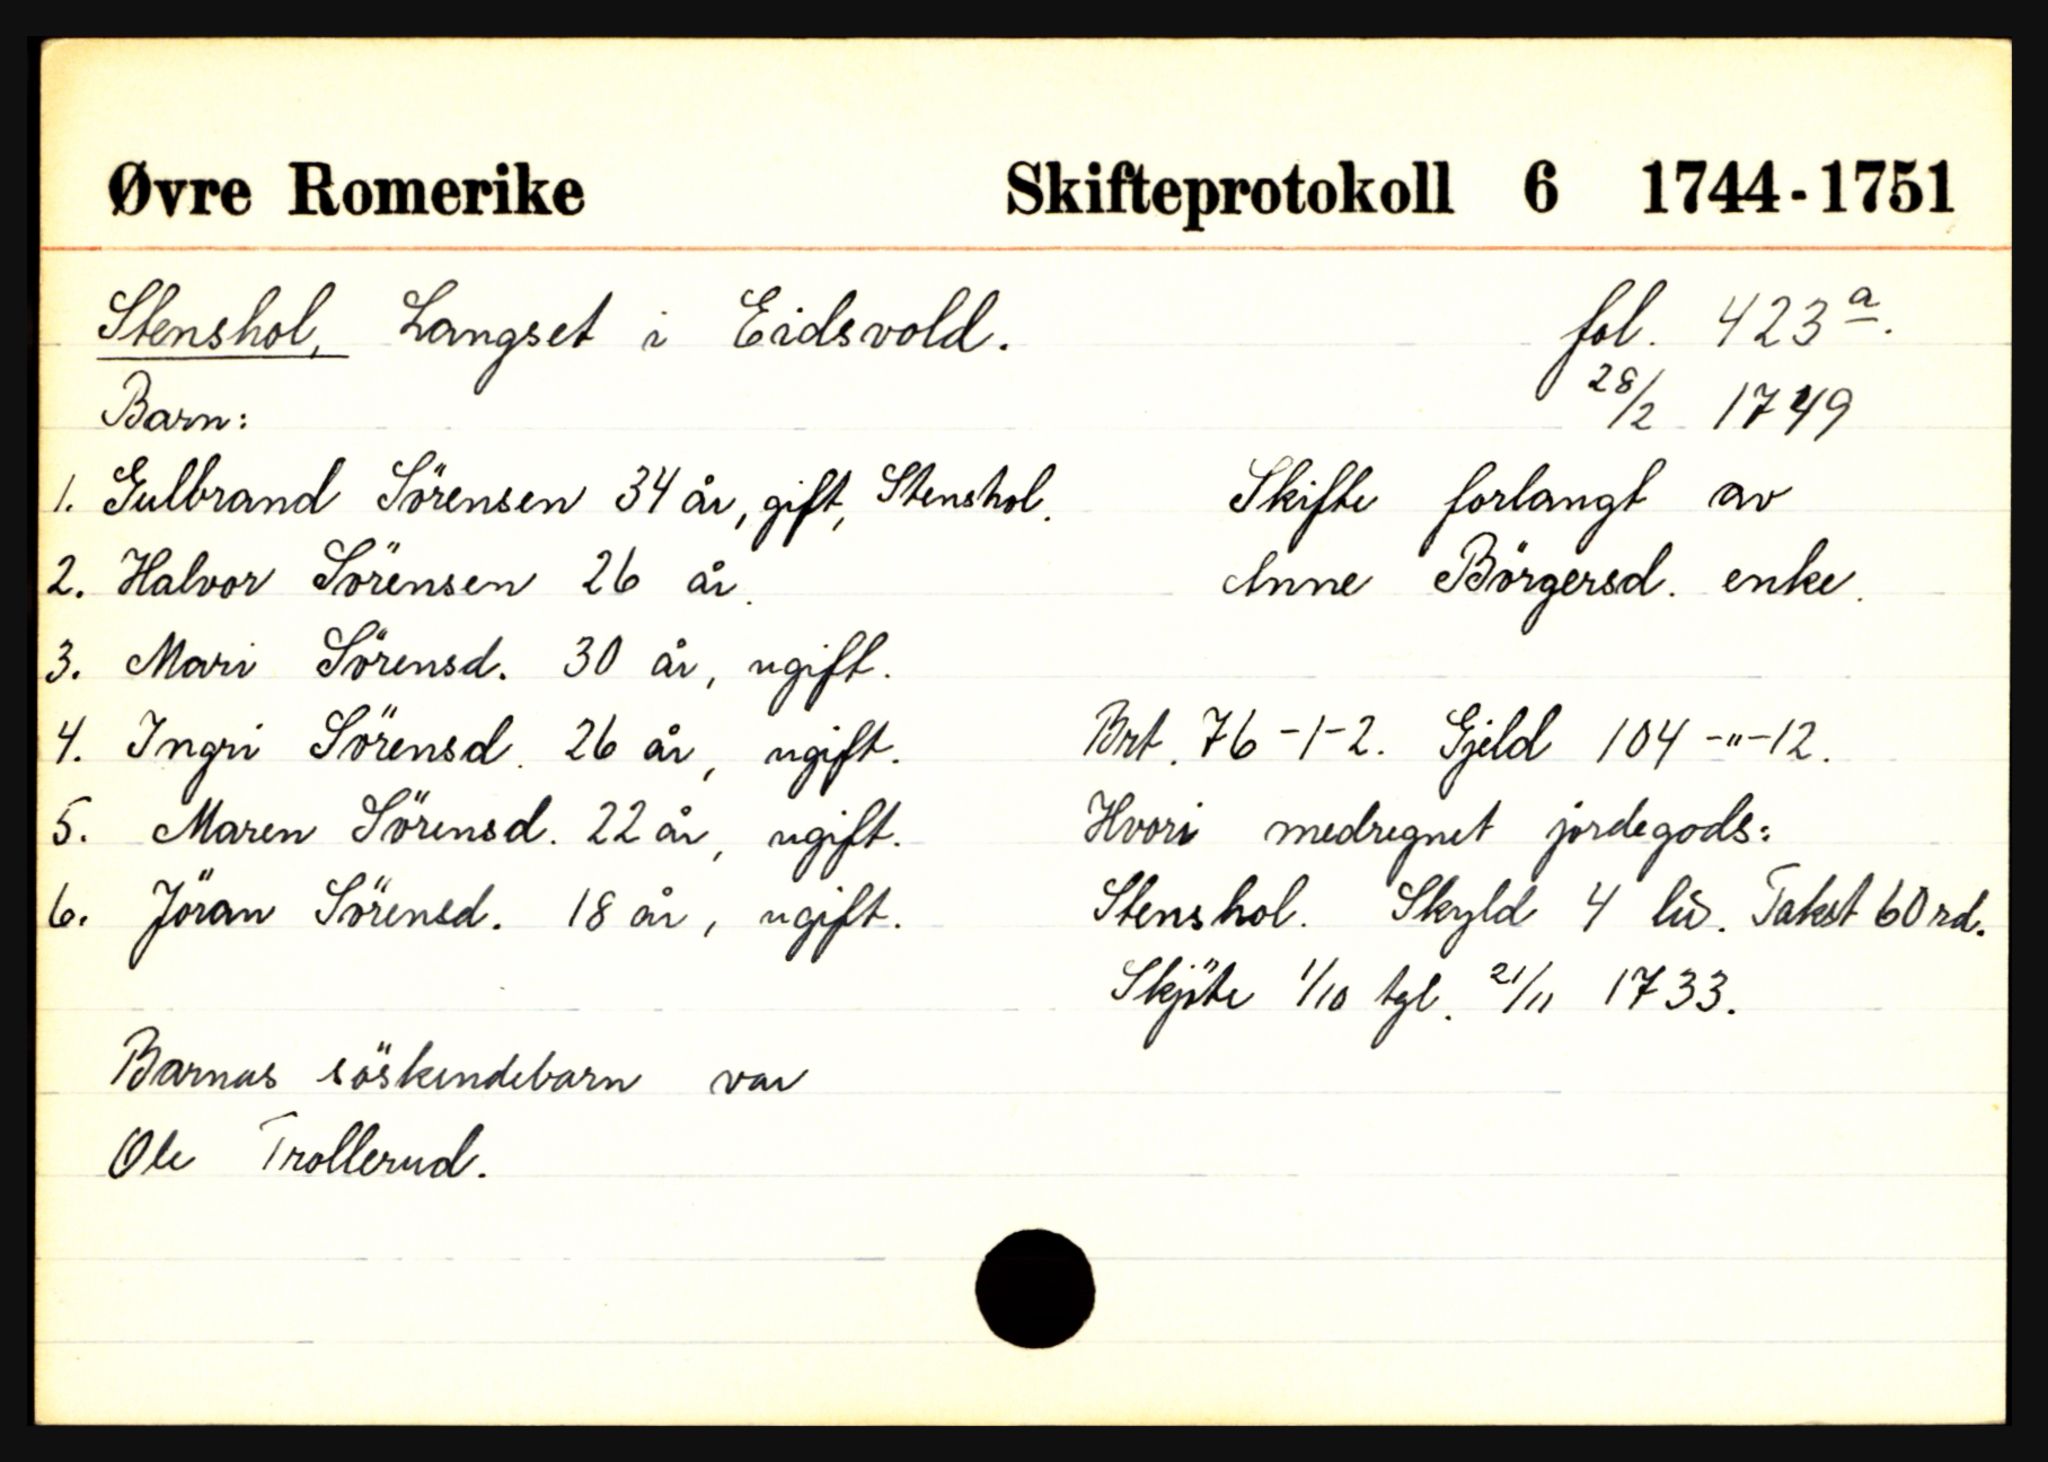 Øvre Romerike Skifteprotokoll 6 1744-1751
Stenshol, Langset i Eidsvold. fol. 423a.
28/2 1749
Barn:
1. Gulbrand Sörensen 34 år, gift, Stenshol.
2. Halvor Sörensen 26 år.
3. Mari Sörensd. 30 år, ugift.
4. Ingri Sörensd. 26 år, ugift.
5. Maren Sörensd. 22 år, ugift.
6. Jöran Sörensd. 18 år, ugift.
Barnas söskendebarn var
Ole Trollerud.
Skifte forlangt av
Anne Börgersd. enke.
Brt. 76-1-2. Gjeld 104-"-12.
Hvori medregnet jordegods:
Stenshol. Skyld 4 lis. Takst 60 rd.
Skjöte 1/10 tgl. 21/11 1733.